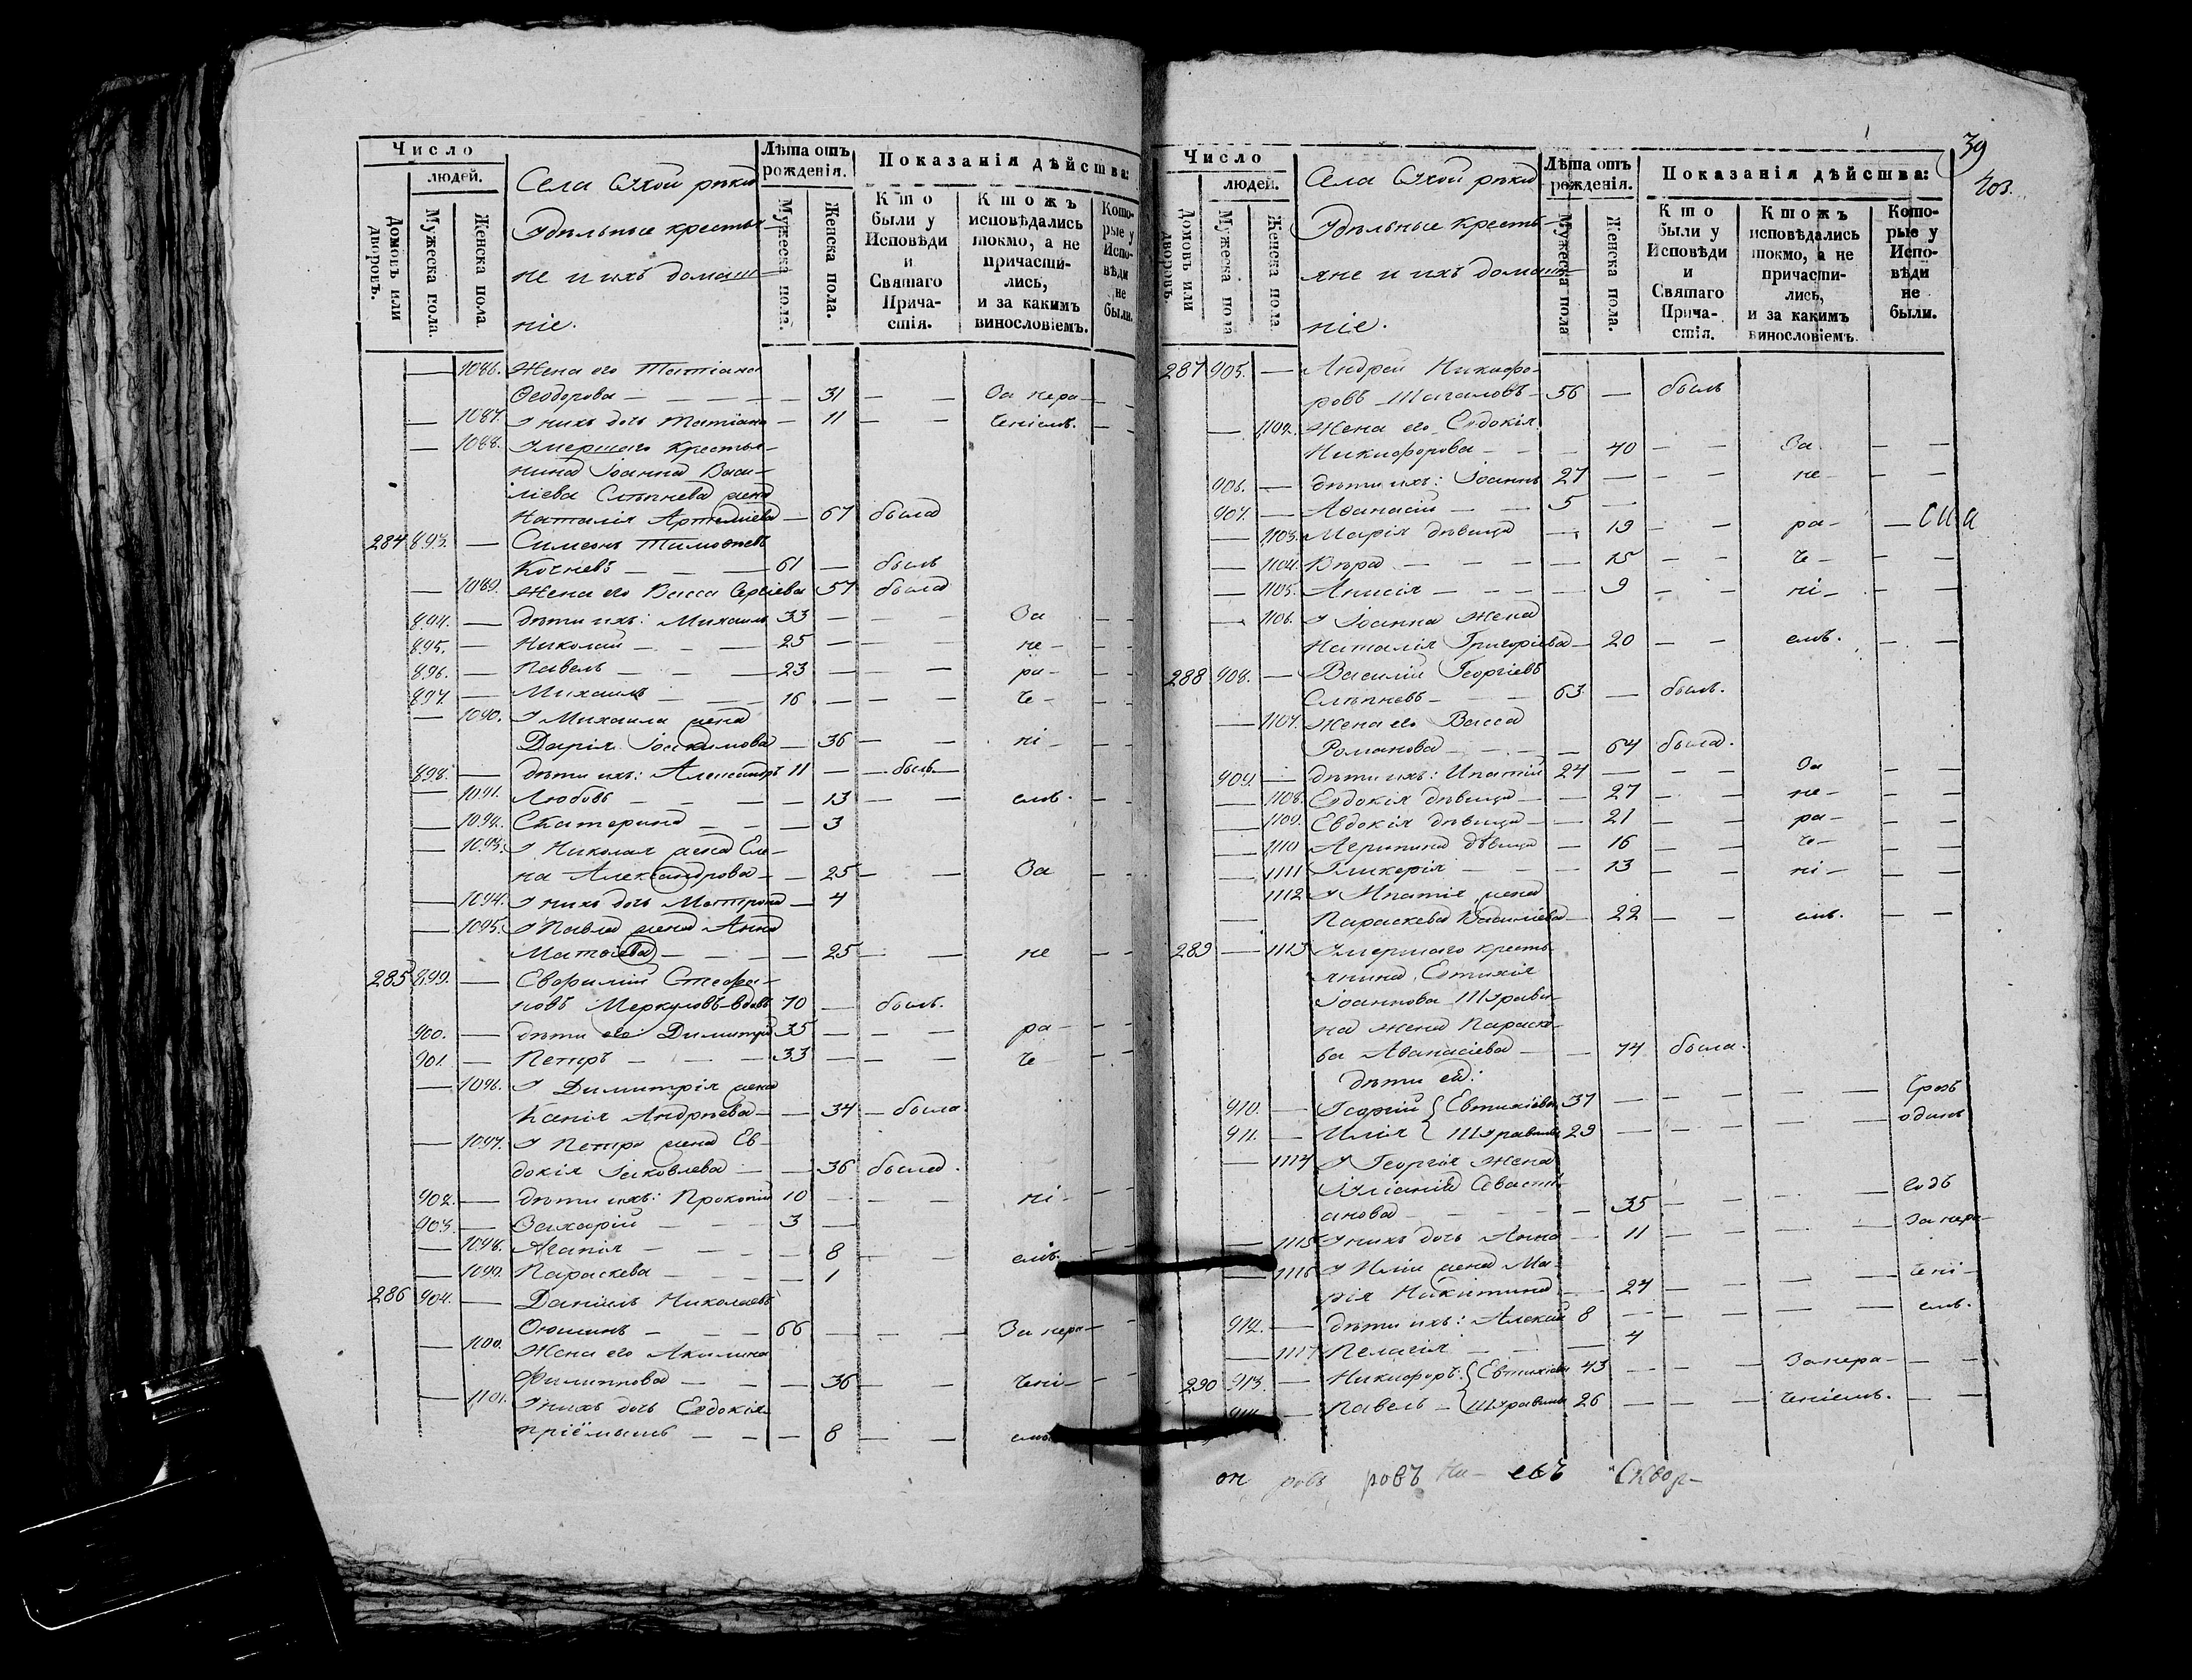 Число
людей.
Домовъ или дворовъ.
Мужеска пола.
Женска пола
Села Сухой рѣки
Удѣльные крестья-
не и ихъ домаш-
ніе.
Лѣта отъ рожденія.
Мужеска пола.
Женска пола.
Показанія дѣйства:
Кто были у Исповѣди и Святаго Прича-стія.
Ктожъ исповѣдались токмо, а не причасти-лись, и за какимъ винословіемъ.
Кото-рые у Испо-вѣди не были.
— 1086. Жена его Татіана
Ѳеодорова — 31 — — За нера-
— 1087. У нихъ дочь Татіана — 11 — — ченіемъ.
— 1088. Умершаго крестья-
нина Іоанна Васи-
ліева Слѣпнева жена
Наталія Артеміева — 67 была
284 893. — Симеонъ Тимоѳеевъ
Кочневъ — 61 — былъ
— 1089. Жена его Васса Сергіева 57 была
894. — дѣти ихъ: Михаилъ 33 — — За
895. — Николай — 25 — — не-
896. — Павелъ — 23 — — ра-
897. — Михаилъ — 16 — — че-
— 1090. У Михаила жена
Дарія Іоакимова — 36 — — ні-
898. — дѣти ихъ: Александръ 11 — былъ
— 1091. Любовь — 13 — — емъ.
— 1092. Екатерина — 3
— 1093. У Николая жена Еле-
на Александрова — 25 — — За
— 1094. У нихъ дочь Матрона — 4
— 1095. У Павла жена Анна
Матѳіева — 25 — — не
285 899. — Евфимій Стефа-
новъ Меркуловъ вдовъ 70 — былъ.
900. — дѣти его Димитрій 35 — — ра-
901. — Петръ — 33 — — че
— 1096. У Димитрія жена
Ксенія Андреева — 34 — была
— 1097. У Петра жена Ев-
докія Іаковлева — 36 была.
902. — дѣти ихъ: Прокопій 10 — — ні-
903. — Захарій — 3 —
— 1098. Агапія — 8 — — емъ.
— 1099. Параскева — 1
286 904. — Даніилъ Николаевъ
66 — — За нера-
— 1100. Жена его Акилина
Филиппова — 36 — — чені-
— 1101. У нихъ дочь Евдокія
пріёмышъ — 8 — — емъ.
39
403.
Число
людей.
Домовъ или дворовъ.
Мужеска пола
Женска пола.
Села Сухой рѣки
Удѣльные кресть-
яне и ихъ домаш-
ніе.
Лѣта отъ рожденія.
Мужеска пола
Женска пола.
Показанія дѣйства:
Кто были у Исповѣди и Святаго Прича-стія.
Ктожъ исповѣдались токмо, а не причасти-лись, и за какимъ винословіемъ.
Кото-рые у Испо-вѣди не были.
287 905. — Андрей Никифо-
ровъ Шагаловъ 56 — былъ
— 1102. Жена его Евдокія
Никифорова — 40 — — За — —
906. — дѣти ихъ: Іоаннъ 27 — — не — —
907. — Аѳанасій — 5 —
— 1103. Марія дѣвица — 19 — — ра- —
— 1104. Вѣра — 15 — — че- — —
— 1105. Анисія — 9 — — ні- — —
— 1106. У Іоанна жена
Наталія Григоріева — 20 — — емъ. — —
288 908. — Василій Георгіевъ
Слѣпневъ — 63 — былъ.
— 1107. Жена его Васса
Романова — 64 была.
909. — дѣти ихъ: Ипатій 24 — — За — —
— 1108. Евдокія дѣвица — 27 — — не- — —
— 1109. Евдокія дѣвица — 21 — — ра- — —
— 1110 Агрипина дѣвица — 16 — — че- — —
— 1111 Гликерія — 13 — — ні- — —
1112 У Ипатія жена
— Параскева Василіева — 22 — — емъ. — —
289 — 1113 Умершаго кресть-
янина Евтихія
Іоаннова Шурави-
на жена Параске-
ва Аѳанасіева — 74 была.
дѣти ея:
910. — Георгій { Евтихіевы 37 — — —
911. — Илія { Шуравины 29 — — — одинъ
— 1114 У Георгія жена
Іуліанія Севасті-
анова — 35 — — — годъ
— 1115 У нихъ дочь Анна — 11 — — — за нера-
— 1116 У Иліи жена Ма-
рія Никитина — 24 — — — чені-
912. — дѣти ихъ: Алексій 8 — — — емъ.
— 1117 Пелагія — 4
290 913. — Никифоръ { Евтихіевы 43 — — За нера- — —
914. — Павелъ { Шуравины 26 — — ченіемъ. — —
ровъ ровъ евъ Сквор-